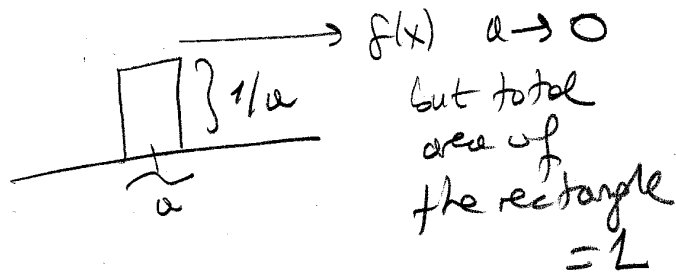 f(x) a → 0
1/a
but total
area of
the rectangle
= 1
a